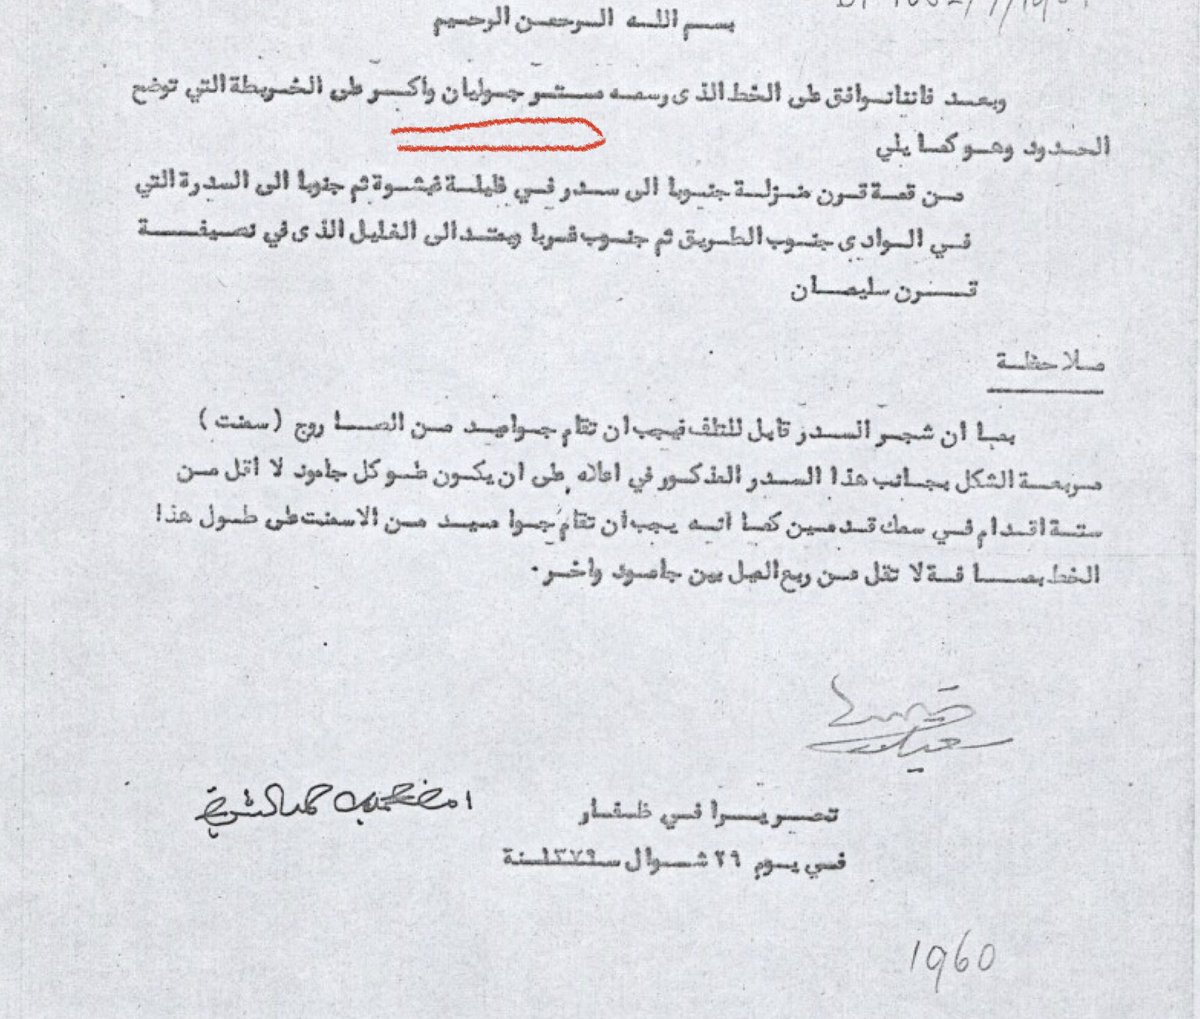 بسم الله الرحمن الرحيم
وبعد فاننا نوافق على الخط الذى رسمه مستر جوليان واكر على الخريطة التي توضح
الحدود وهو كما يلي
من قمة قرن جنوبا الى سدر في فليلة ثم جنوبا الى السدرة التي
في الوادى جنوب الطريق ثم جنوب غربا ويمتد الى الفليل الذى في نصيفة
قرن سليمان
ملاحظة
بما ان شجر السدر قابل للتلف فيجب ان تقام جواميد من الصاروج (سمنت)
مربعة الشكل بجانب هذا السدر المذكور في اعلاه على ان يكون طو كل جامود لا اقل من
ستة اقدام في سمك قدمين كما انه يجب ان تقام جواميد من الاسمنت على طول هذا
الخط بمسافة لا تقل من ربع الميل بين جامود واخر.
سعيد
تحريرا في ظفار
في يوم ٢٩ شوال سنة ١٣٧٩
1960